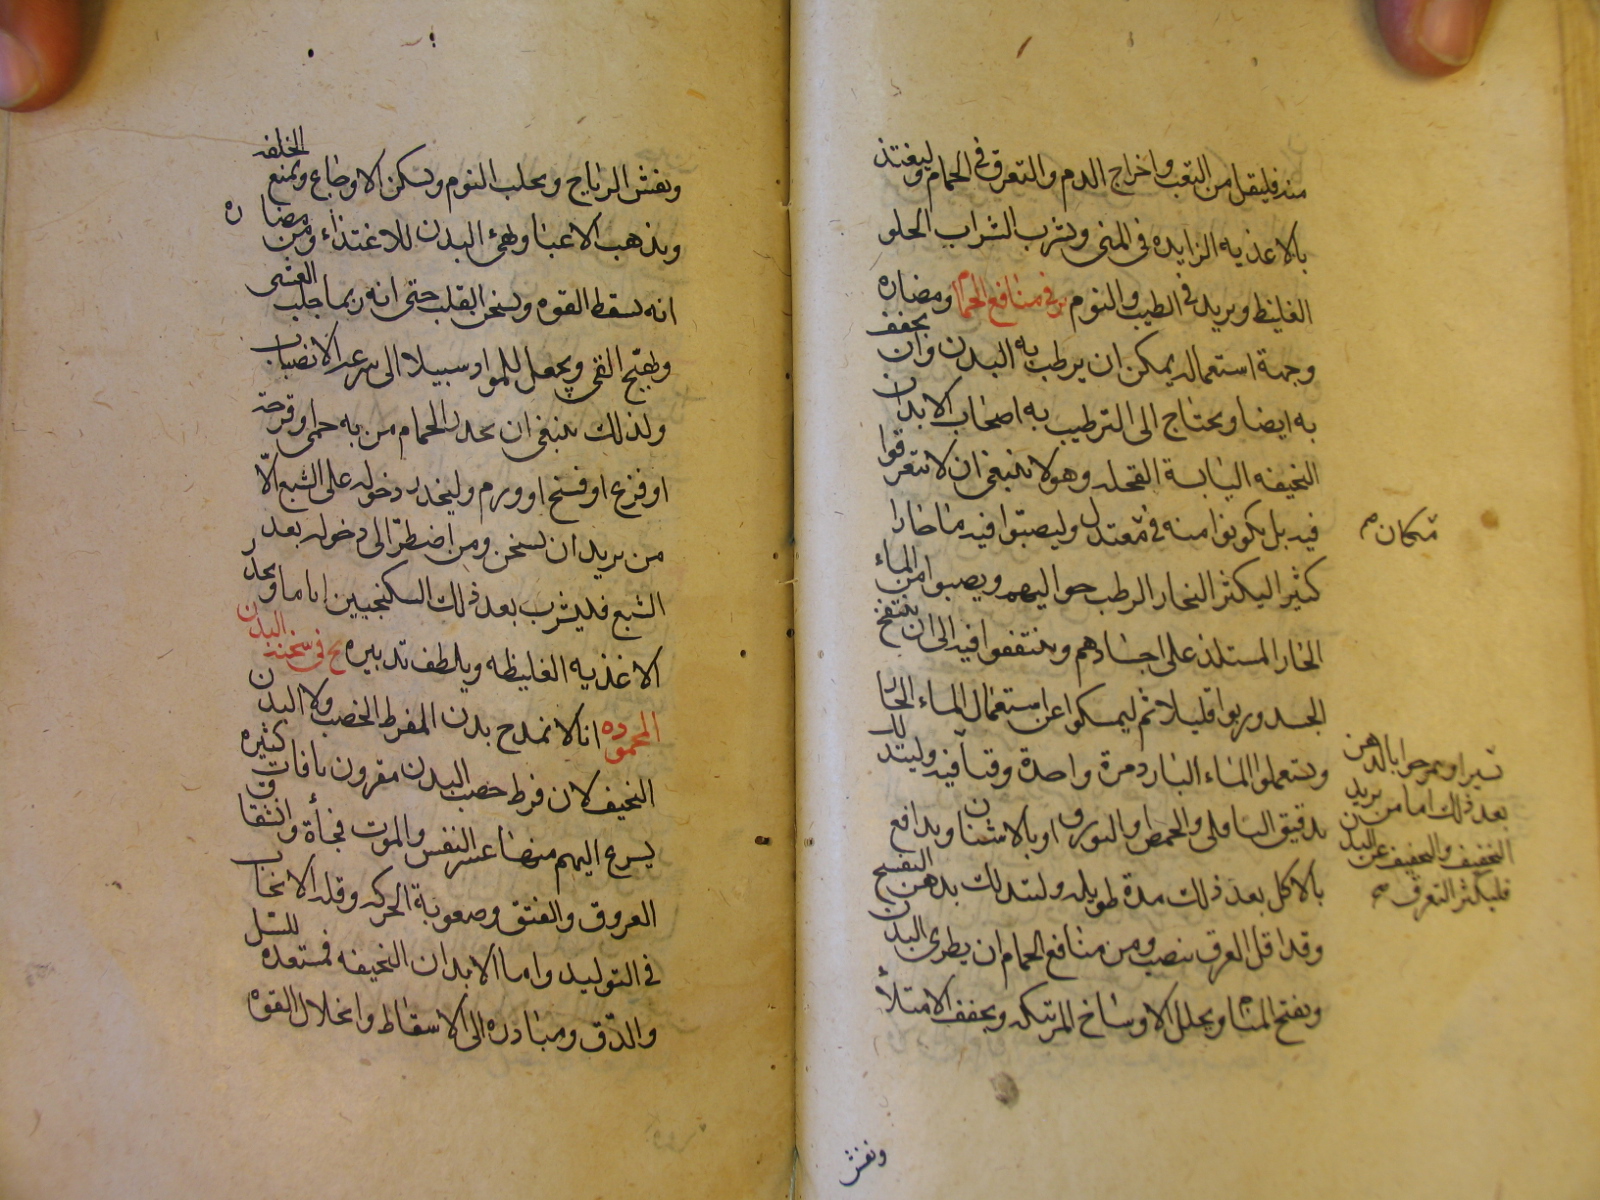 منه فليقل من التعب واخراج الدم والتعرق في الحمام وليغتذ
بالاغذيه الزايده في المني ويشرب الشراب الحلو
الغليظ ويزيد في الطيب والنوم في منافع الحمام ومضاره
وجهة استعماله يمكن ان يرطب به البدن وان يجفف
به ايضا ويحتاج الى الترطيب به اصحاب الابدان
النحيفه اليابسة القحله وهولا ينبغي ان لا يتعرقوا
فيه بل يكونوا منه في معتدل وليصبوا فيه ما حارا
كثيرا ليكثر البخار الرطب حواليهم ويصبوا من الماء
الحار المستلذ على اجسادهم ويتنقعوا فيه الى ان ينتفخ
الجسد وربوا قليلا ثم ليمسكوا عن استعمال الماء الحار
ويستعملوا الماء البارد مرة واحدة وقتا فيه وليتدلك
بدقيق الباقلي والحمص والبورق او بالاشنان ويدافع
بالاكل بعد ذلك مدة طويله وليتدلك بدهن البنفسج
وقد اقل العرق بنصب ومن منافع الحمام ان يطري البدن
ويفتح المسام ويحلل الاوساخ المرتبكه ويجفف الامتلأ
مكان
يسيرا ويمرخوا بالدهن
بعد ذلك اما من يريد
التخفيف والتجفيف عن البدن
فليكثر التعرق صح
ونفش
ونفش الرياح ويجلب النوم ويسكن الاوجاع ويمنع الخلفه
ويذهب الاعيا ويهيء البدن للاغتذاء ومن مضاره
انه يسقط القوه ويسخن القلب حتى انه ربما جلب الغشى
ويهيج القي ويجعل للمواد سبيلا الى سرعه الانصباب
ولذلك ينبغي ان يحذر الحمام من به حمى او قرحة
او فزع او فسخ او ورم وليحذر دخوله على الشبع الّا
من يريد ان يسخن ومن اضطر الى دخوله بعد
الشبع فليشرب بعد ذلك السكنجبين اياما ويحذر
الاغذيه الغليظه ويلطف تدبيره في سحنه البدن
المحموده انا لا نمدح بدن المفرط الخصب ولا البدن
النحيف لان فرط خصب البدن مقرون بافات كثيره
يسرع اليهم منها عسر النفس والموت فجأة وانشقاق
العروق والفتق وصعوبة الحركه وقله الانجاب
في التوليد واما الابدان النحيفه فمستعده للسّل
والدّق ومبادره الى الاسقاط وانحلال القوه